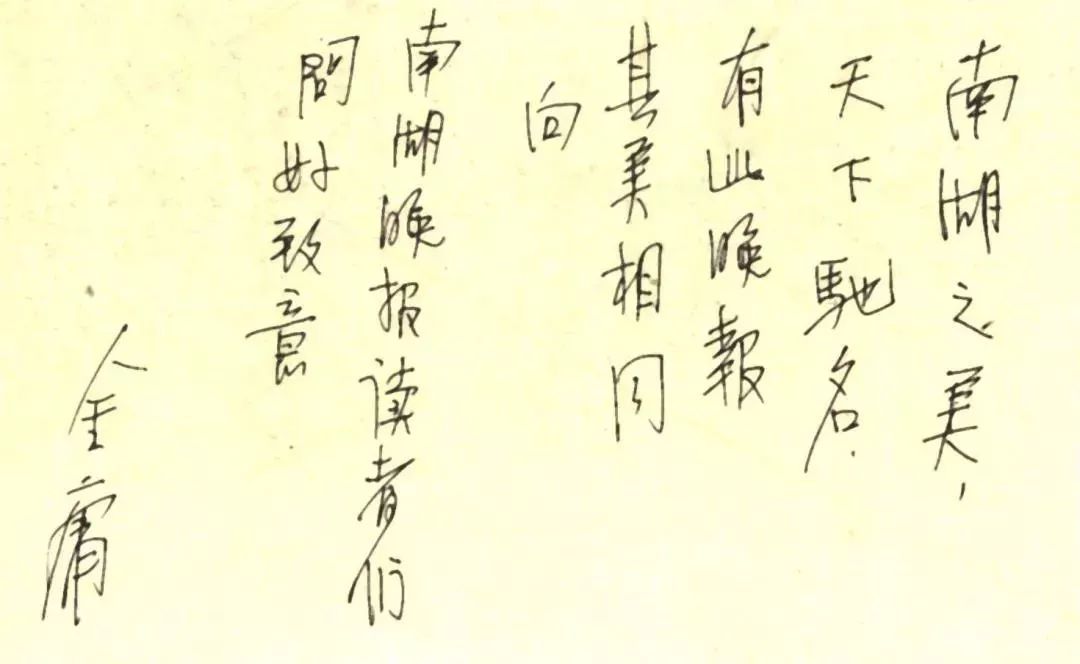 南湖之美，
天下馳名．
有此晚報
其美相同
向
南湖晚报读者们
問好致意
金庸